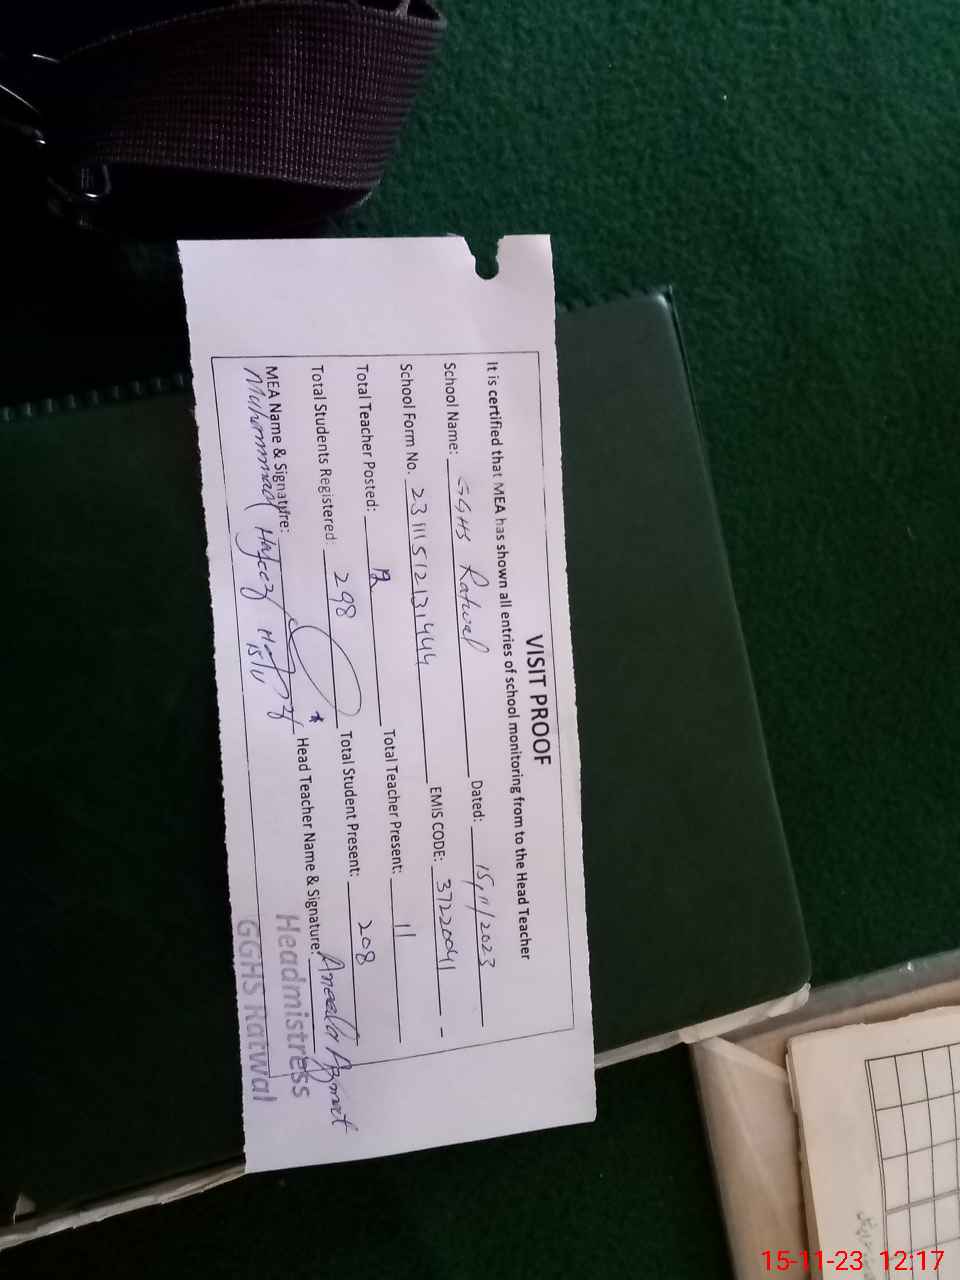 VISIT PROOF
It is certified that MEA has shown all entries of school monitoring from to the Head Teacher
School Name: GGHS Ratwal Dated: 15/11/2023
School Form No. 23111512131444 EMIS CODE: 37220041 -
Total Teacher Posted: 12 Total Teacher Present: 11
Total Students Registered: 298 Total Student Present: 208
MEA Name & Signature: * Head Teacher Name & Signature: Aneela Azmat
Muhammad Hafeez
15/11
Headmistress
GGHS Ratwal
15-11-23 12:17